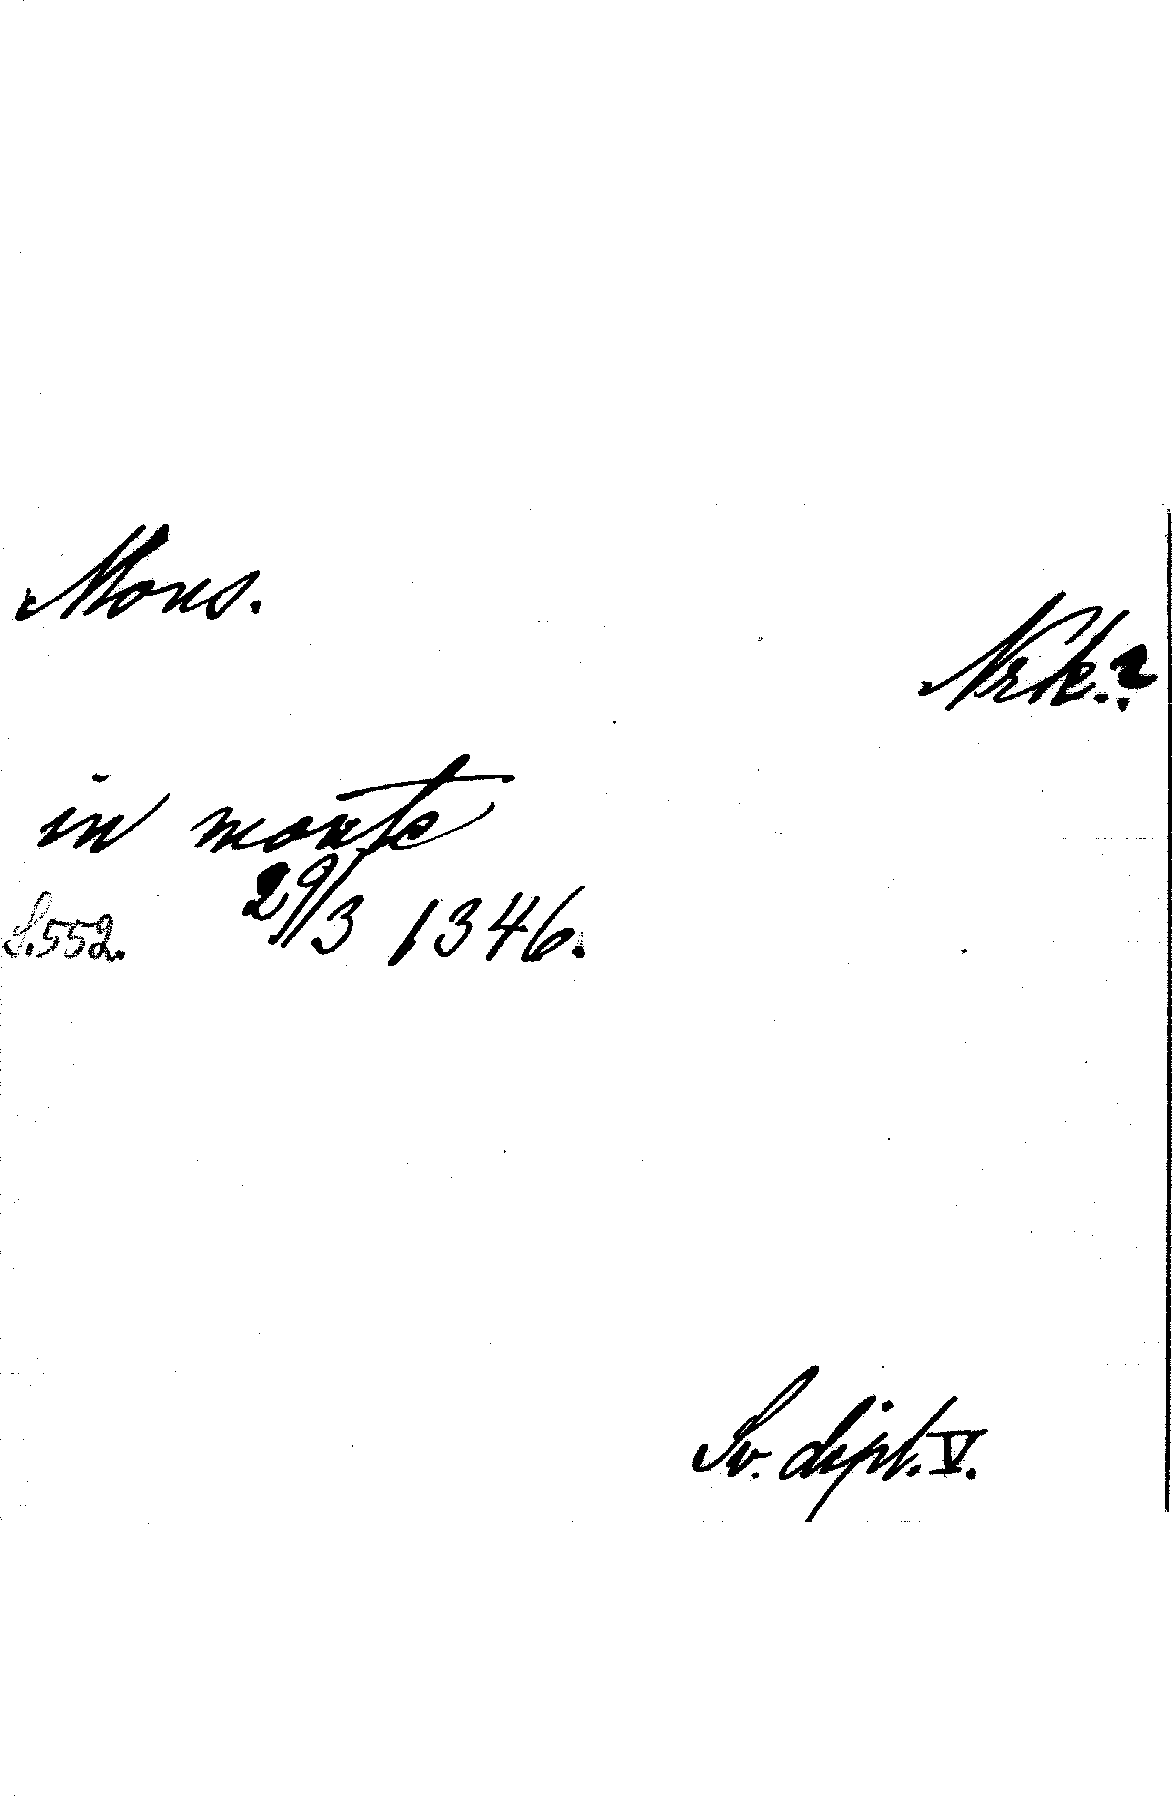 Mons.
Nrk.?
in monte
29/3 1346.
S. 552.
Sv. dipl. V.